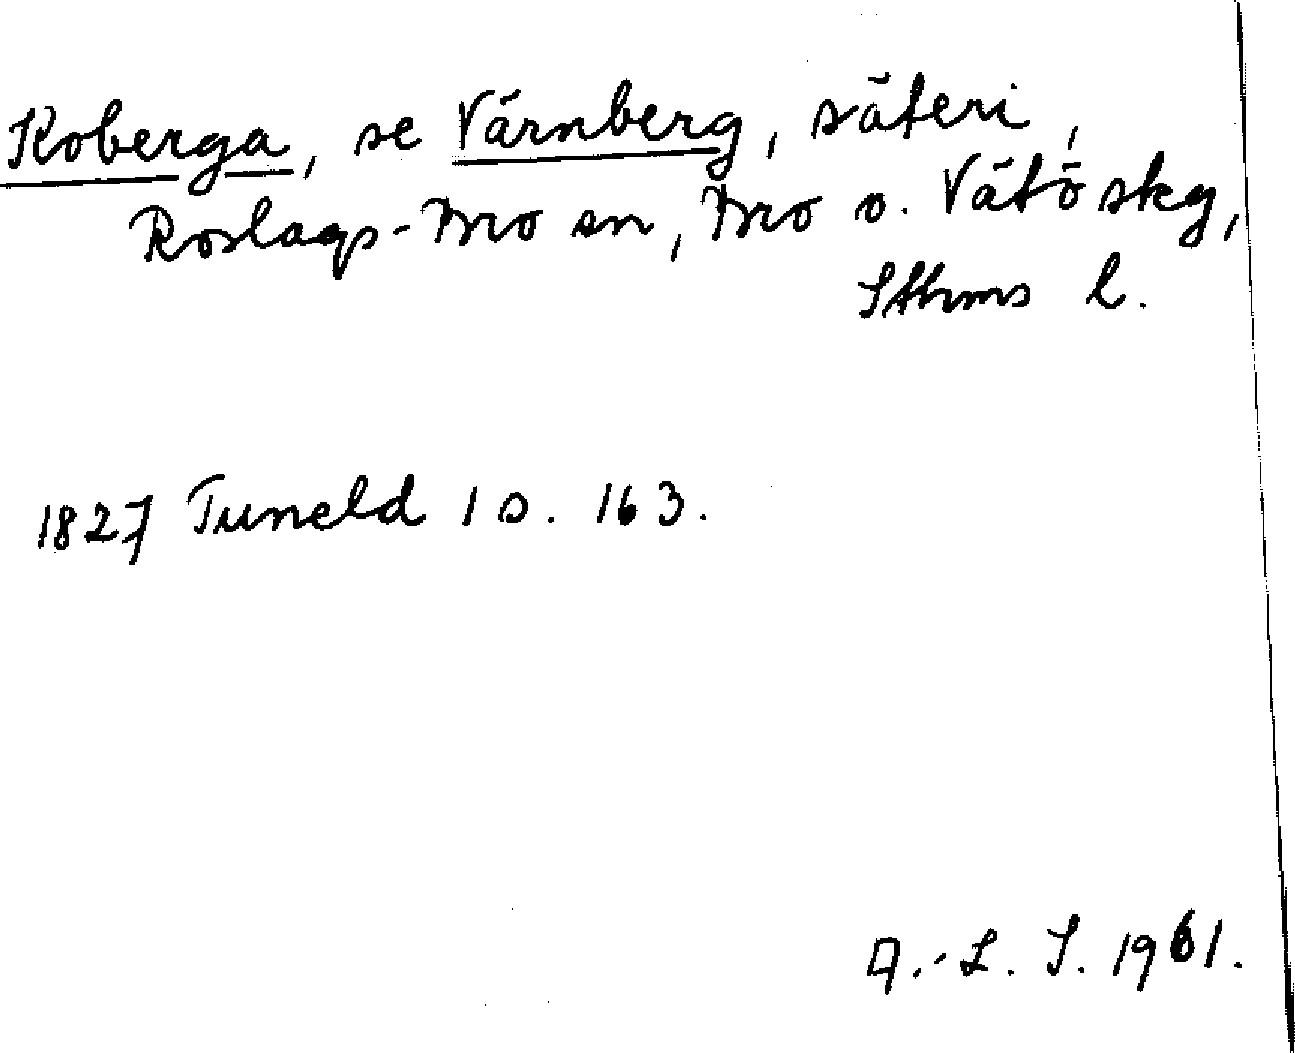 Koberga, se Värnberg, säteri,
Roslags-Bro sn, Bro o. Vätö skg,
Sthms l.
1827 Tuneld 1 s. 163.
A.-L. S. 1961.